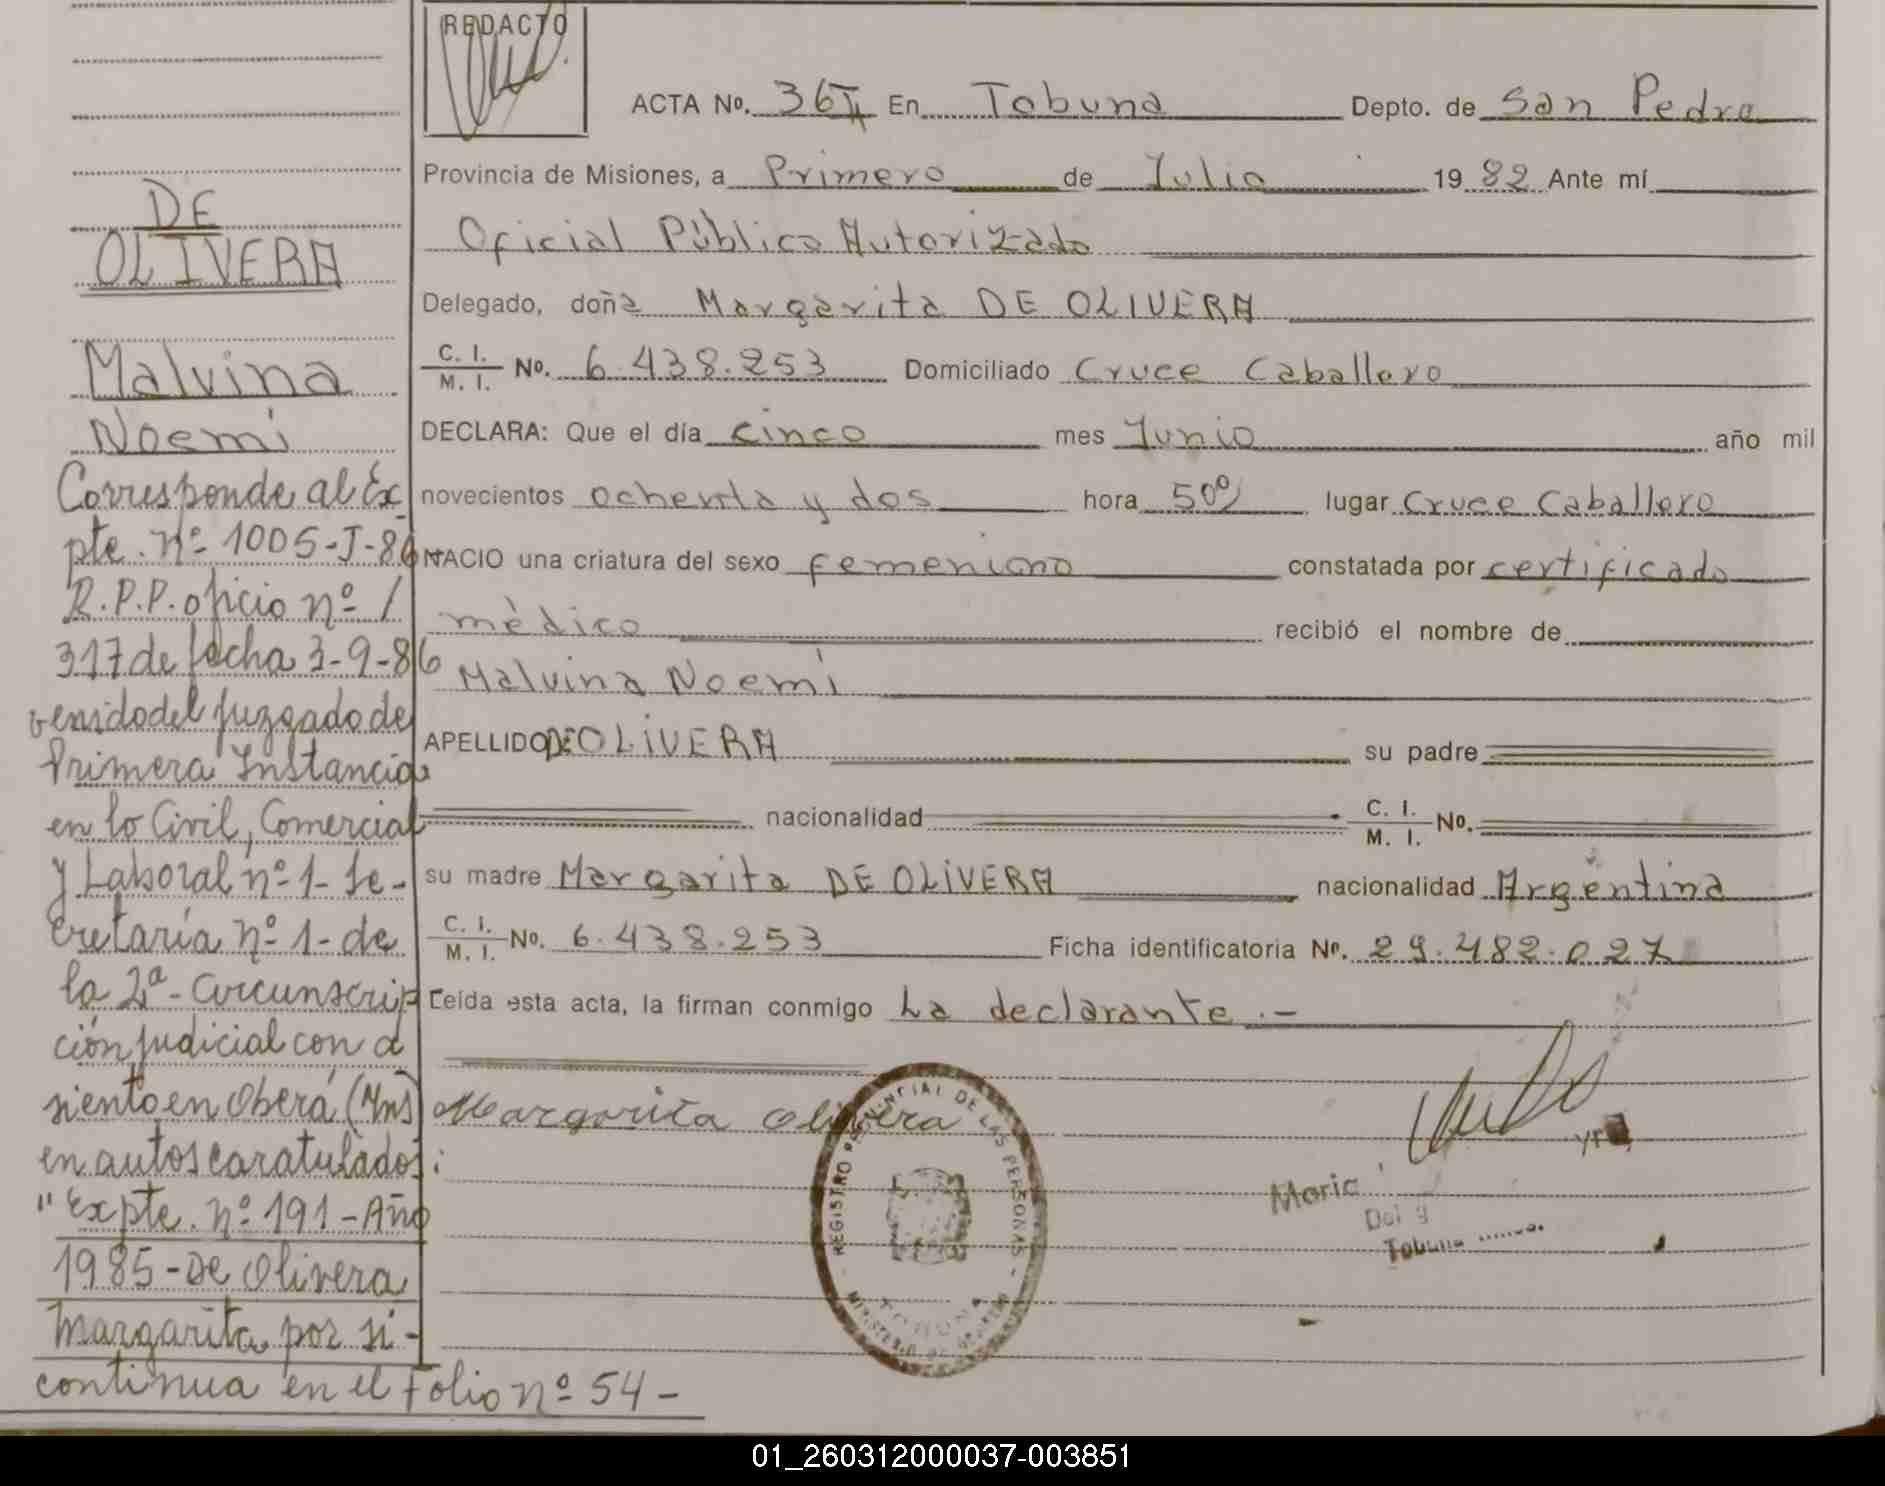 REDACTO
ACTA No. 36 II En Tobuna Depto. de San Pedro
Provincia de Misiones, a Primero de Julio 1982 Ante mí
Oficial Público Autorizado
Delegado, doña Margarita DE OLIVERA
C. I. / M. I. No. 6.438.253 Domiciliado Cruce Caballero
DECLARA: Que el día cinco mes Junio año mil
novecientos ochenta y dos hora 5 00 lugar Cruce Caballero
NACIO una criatura del sexo femenino constatada por certificado
mèdico recibió el nombre de
Malvina Noemi
APELLIDO DE OLIVERA su padre
nacionalidad C. I. / M. I. No.
su madre Margarita DE OLIVERA nacionalidad Argentina
C. I. / M. I. No. 6.438.253 Ficha identificatoria No. 29.482.027
Leída esta acta, la firman conmigo La declarante.-
Margarita Olivera
REGISTRO PROVINCIAL DE LAS PERSONAS
TOBUNA
MINISTERIO DE GOBIERNO
Tobuna
DE
OLIVERA
Malvina
Noemi
Corresponde al Ex-
pte. nº 1005-J-86
R.P.P. oficio nº 1
317 de fecha 3-9-86
venido del Juzgado de
Primera Instancia
en lo Civil, Comercial
y Laboral nº 1- Se-
cretaría nº 1- de
la 2ª- Circunscrip
ción Judicial con a
siento en Oberá (Mns)
en autos caratulados:
"Expte. nº 191-Año
1985-De Olivera
Margarita por sí-
continua en el folio nº 54-
01_260312000037-003851